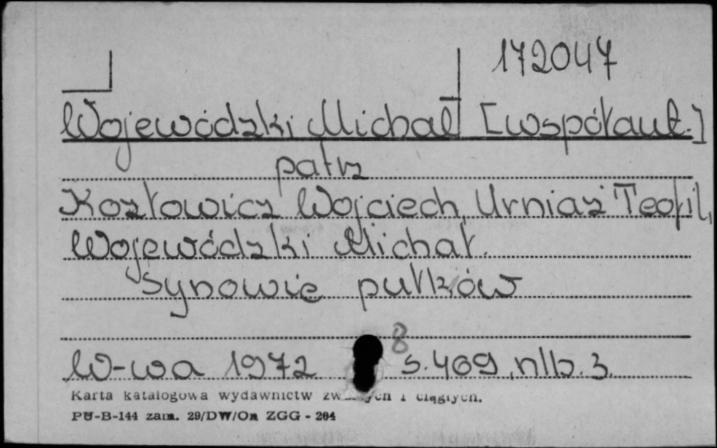 172047
Wojewódzki Michał [współaut.]
patrz
Kozłowicz Wojciech, Urniaż Teofil,
Wojewódzki Michał.
Synowie pułków
W-wa 1972 8 s. 469, nlb. 3.
Karta katalogowa wydawnictw i ciągłych.
PU-B-144 zam. 29/DW/On ZGG - 204